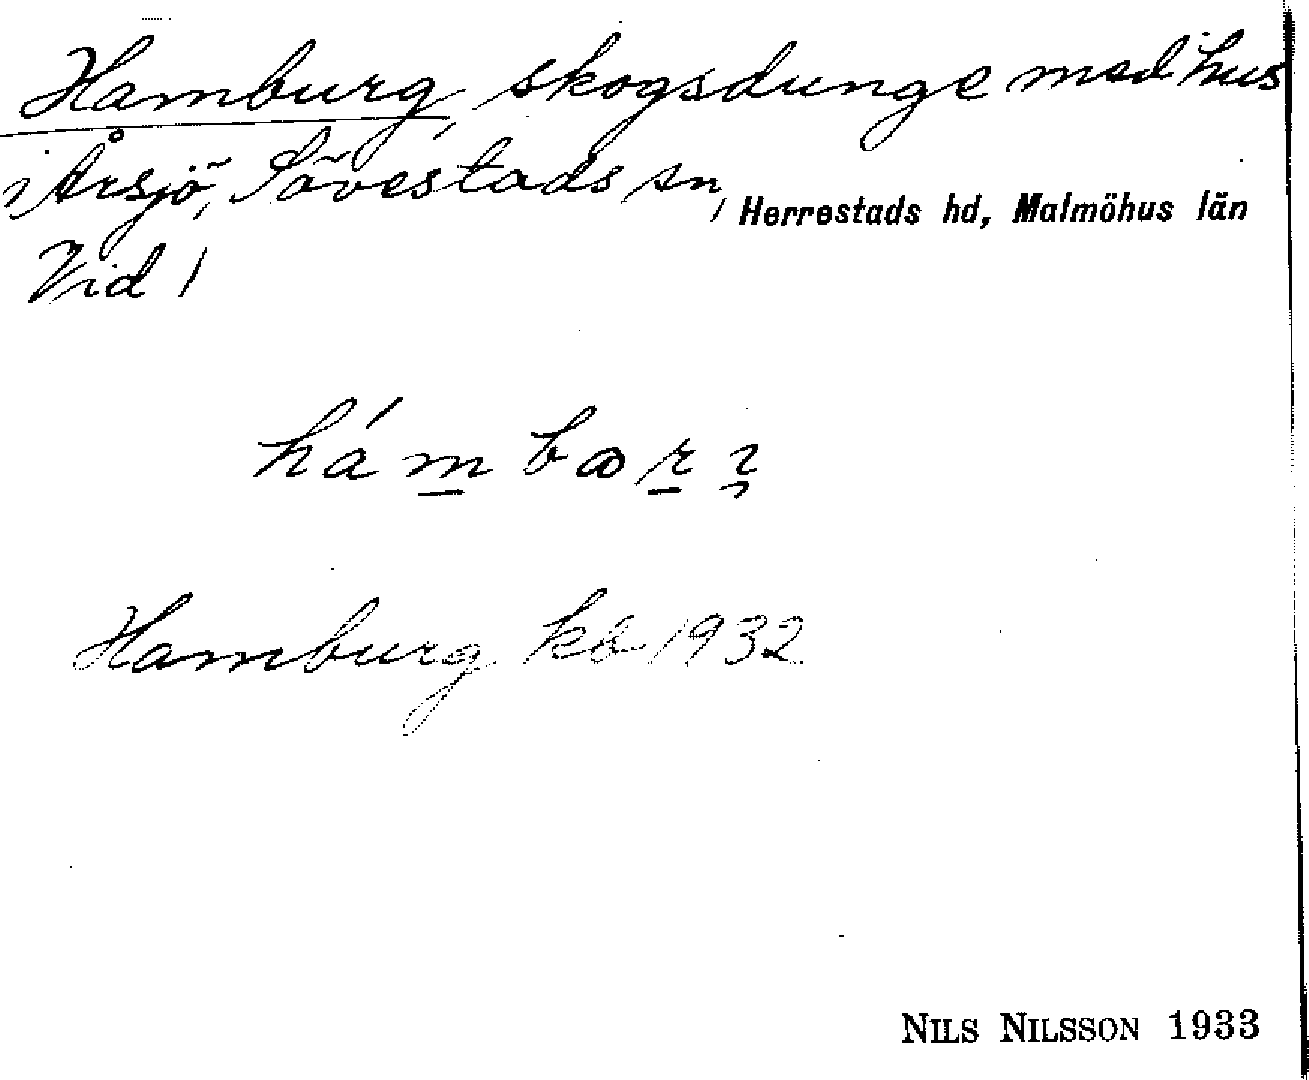 Hamburg, skogsdunge med hus
i Årsjö, Sövestads sn, Herrestads hd, Malmöhus län
Vid 1
Hamburg kb 1932
NILS NILSSON 1933